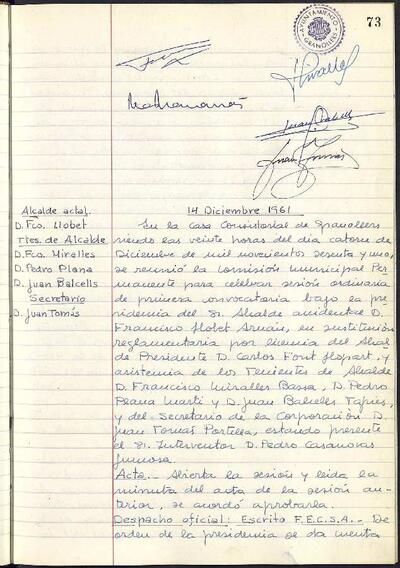 AYUNTAMIENTO
GRANOLLERS
73
Alcalde actal.
D. Fco. Llobet
Ttes. de Alcalde
D. Fco. Miralles
D. Pedro Plana
D. Juan Balcells
Secretario
D. Juan Tomás
14 Diciembre 1961
En la Casa Consistorial de Granollers
siendo las veinte horas del día catorce de
Diciembre de mil novecientos sesenta y uno,
se reunió la Comisión Municipal Per
manente para celebrar sesión ordinaria
de primera convocatoria bajo la pre
sidencia del Sr. Alcalde accidental D.
Francisco Llobet Arnán, en sustitución
reglamentaria por licencia del Alcal
de Presidente D. Carlos Font Llopart, y
asistencia de los Tenientes de Alcalde
D. Francisco Miralles Bassa, D. Pedro
Plana Martí y D. Juan Balcells Tapies,
y del Secretario de la Corporación D.
Juan Tomás Portella, estando presente
el Sr. Interventor D. Pedro Casanovas
Acta.- Abierta la sesión y leida la
minuta del acta de la sesión an-
terior, se acordó aprobarla.
Despacho oficial: Escrito F.E.C.S.A.- De
orden de la presidencia se da cuenta